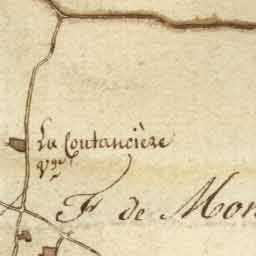 La Coutancière
Vge
F de Mon